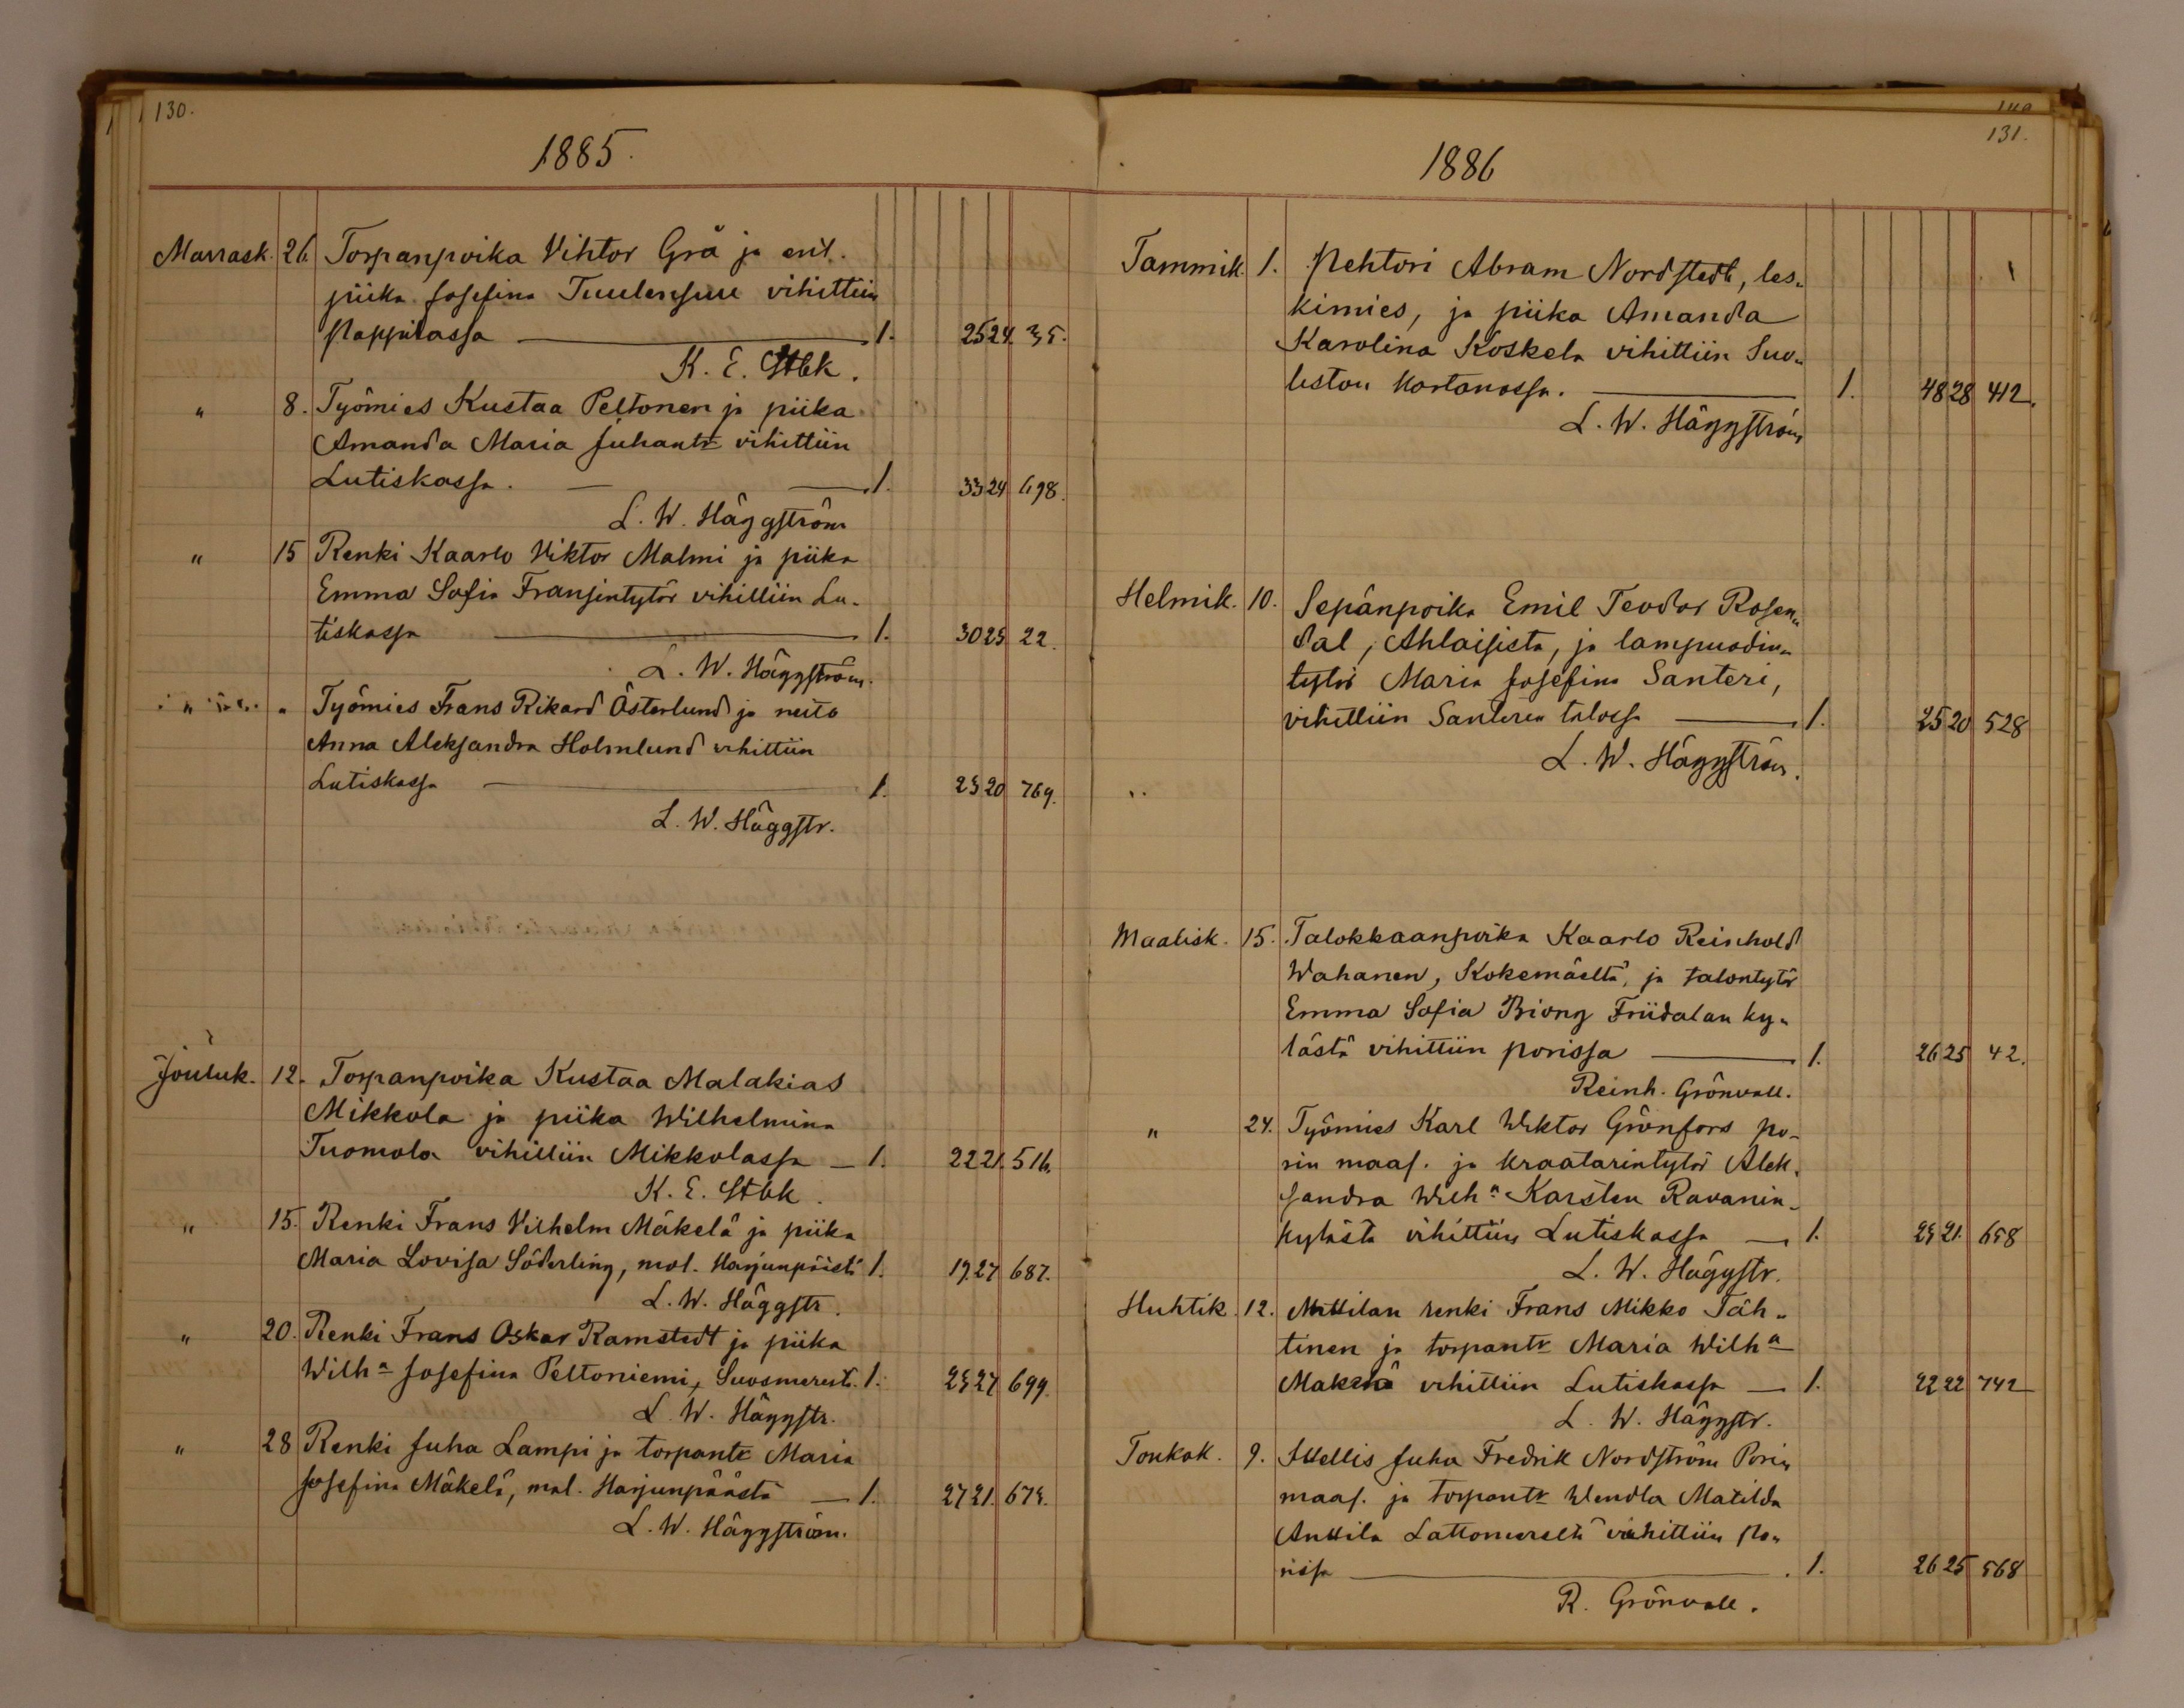 130.
1885.
Marrask. 26. Torpanpoika Vihtor Grå ja ent.
piika Josefina Tuulensuu vihittiin
Pappilassa — 1. 25 24. 35.
K. E. Stbk.
" 8. Työmies Kustaa Peltonen ja piika
Amanda Maria Juhantr vihittiin
Lutiskassa. — 1. 33 24 698.
L. W. Häggström
" 15 Renki Kaarlo Viktor Malmi ja piika
Emma Sofia Fransintytär vihittiin Lu-
tiskassa — 1. 30 25 22.
L. W. Häggström.
" " Työmies Frans Rikard Österlund ja neito
Anna Aleksandra Holmlund vihittiin
Lutiskassa — 1. 23 20 769.
L. W. Häggstr.
Jouluk. 12. Torpanpoika Kustaa Malakias
Mikkola ja piika Wilhelmina
Tuomola vihittiin Mikkolassa — 1. 22 21. 516.
K. E. Stbk.
" 15. Renki Frans Vilhelm Mäkelä ja piika
Maria Lovisa Söderling, mol. Harjunpäästä 1. 19. 27 687.
L. W. Häggstr.
" 20. Renki Frans Oskar Ramstedt ja piika
Wilha Josefina Peltoniemi, Suosmerest. 1. 23 27 699.
L. W. Häggstr.
" 28 Renki Juha Lampi ja torpantr Maria
Josefina Mäkelä, mol. Harjunpäästä — 1. 27 21. 673.
L. W. Häggström.
131.
1886
Tammik. 1. Pehtori Abram Nordstedt, les-
kimies, ja piika Amanda
Karolina Koskela vihittiin Suo-
liston kartanossa. — 1. 48 28 412.
L. W. Häggström
Helmik. 10. Sepänpoika Emil Teodor Rosen-
dal, Ahlaisista, ja lampuodin-
tytär Maria Josefina Santeri,
vihittiin Santerin talossa — 1. 25 20 528
L. W. Häggström.
Maalisk. 15. Talokkaanpoika Kaarlo Reinhold
Wahanen, Kokemäeltä, ja talontytär
Emma Sofia Biong Friidalan ky-
lästä vihittiin Porissa — 1. 26 25 42.
Reinh. Grönvall.
" 24. Työmies Karl Wiktor Grönfors Po-
rin maas. ja kraatarintytär Alek-
sandra Wilha Karsten Ravanin-
kylästä vihittiin Lutiskassa — 1. 23 21. 658
L. W. Häggstr.
Huhtik. 12. Anttilan renki Frans Mikko Täh-
tinen ja torpantr Maria Wilha
Mäkelä vihittiin Lutiskassa — 1. 22 22 742
L. W. Häggstr.
Toukok. 9. Itellis Juha Fredrik Nordström Porin
maas. ja torpantr Wendla Matilda
Anttila Lattomerelta vihittiin Po-
rissa — 1. 26 25 568
R. Grönvall.